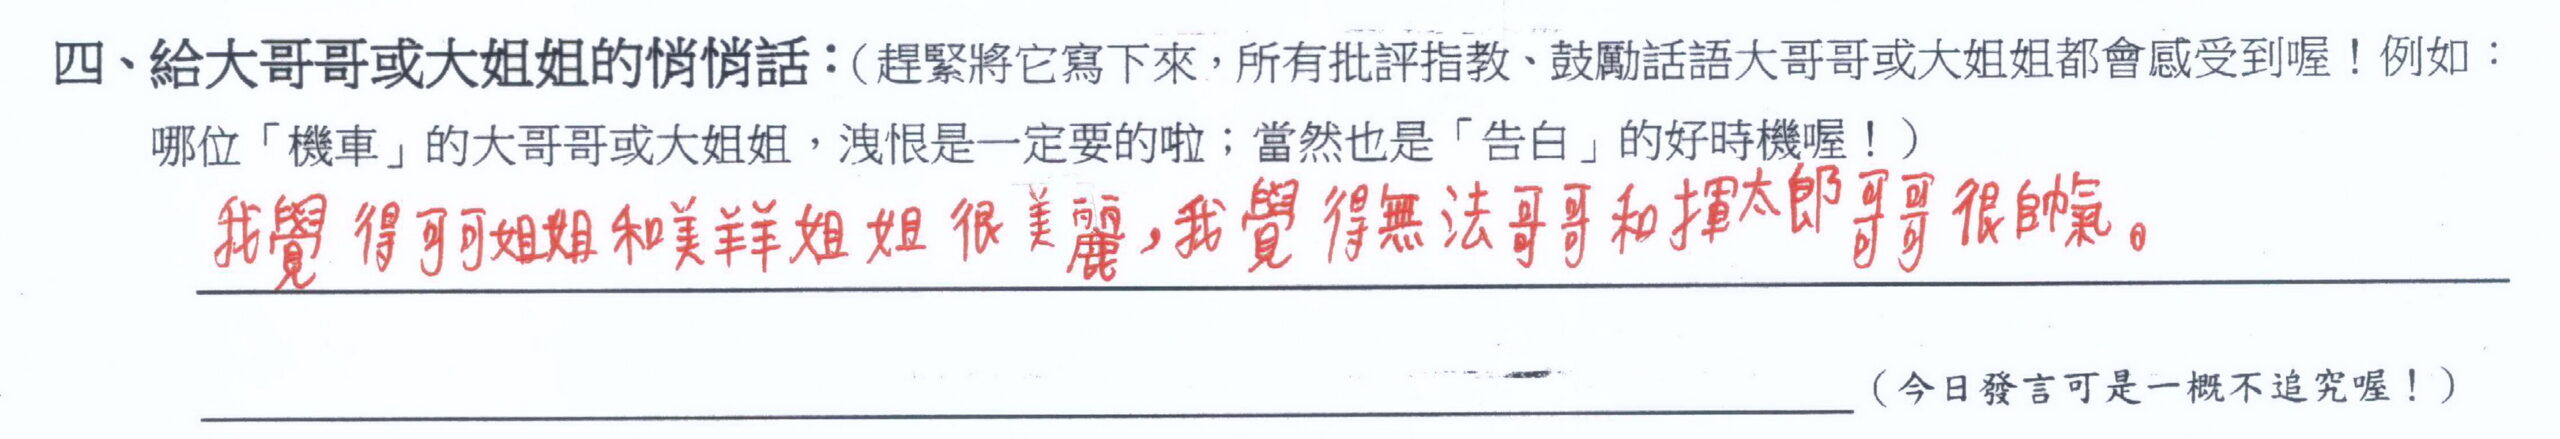 四、給大哥哥或大姐姐的悄悄話：（趕緊將它寫下來，所有批評指教、鼓勵話語大哥哥或大姐姐都會感受到喔！例如：
哪位「機車」的大哥哥或大姐姐，洩恨是一定要的啦；當然也是「告白」的好時機喔！）
我覺得可可姐姐和美羊羊姐姐很美麗，我覺得無法哥哥和揮太郎哥哥很帥氣。
（今日發言可是一概不追究喔！）